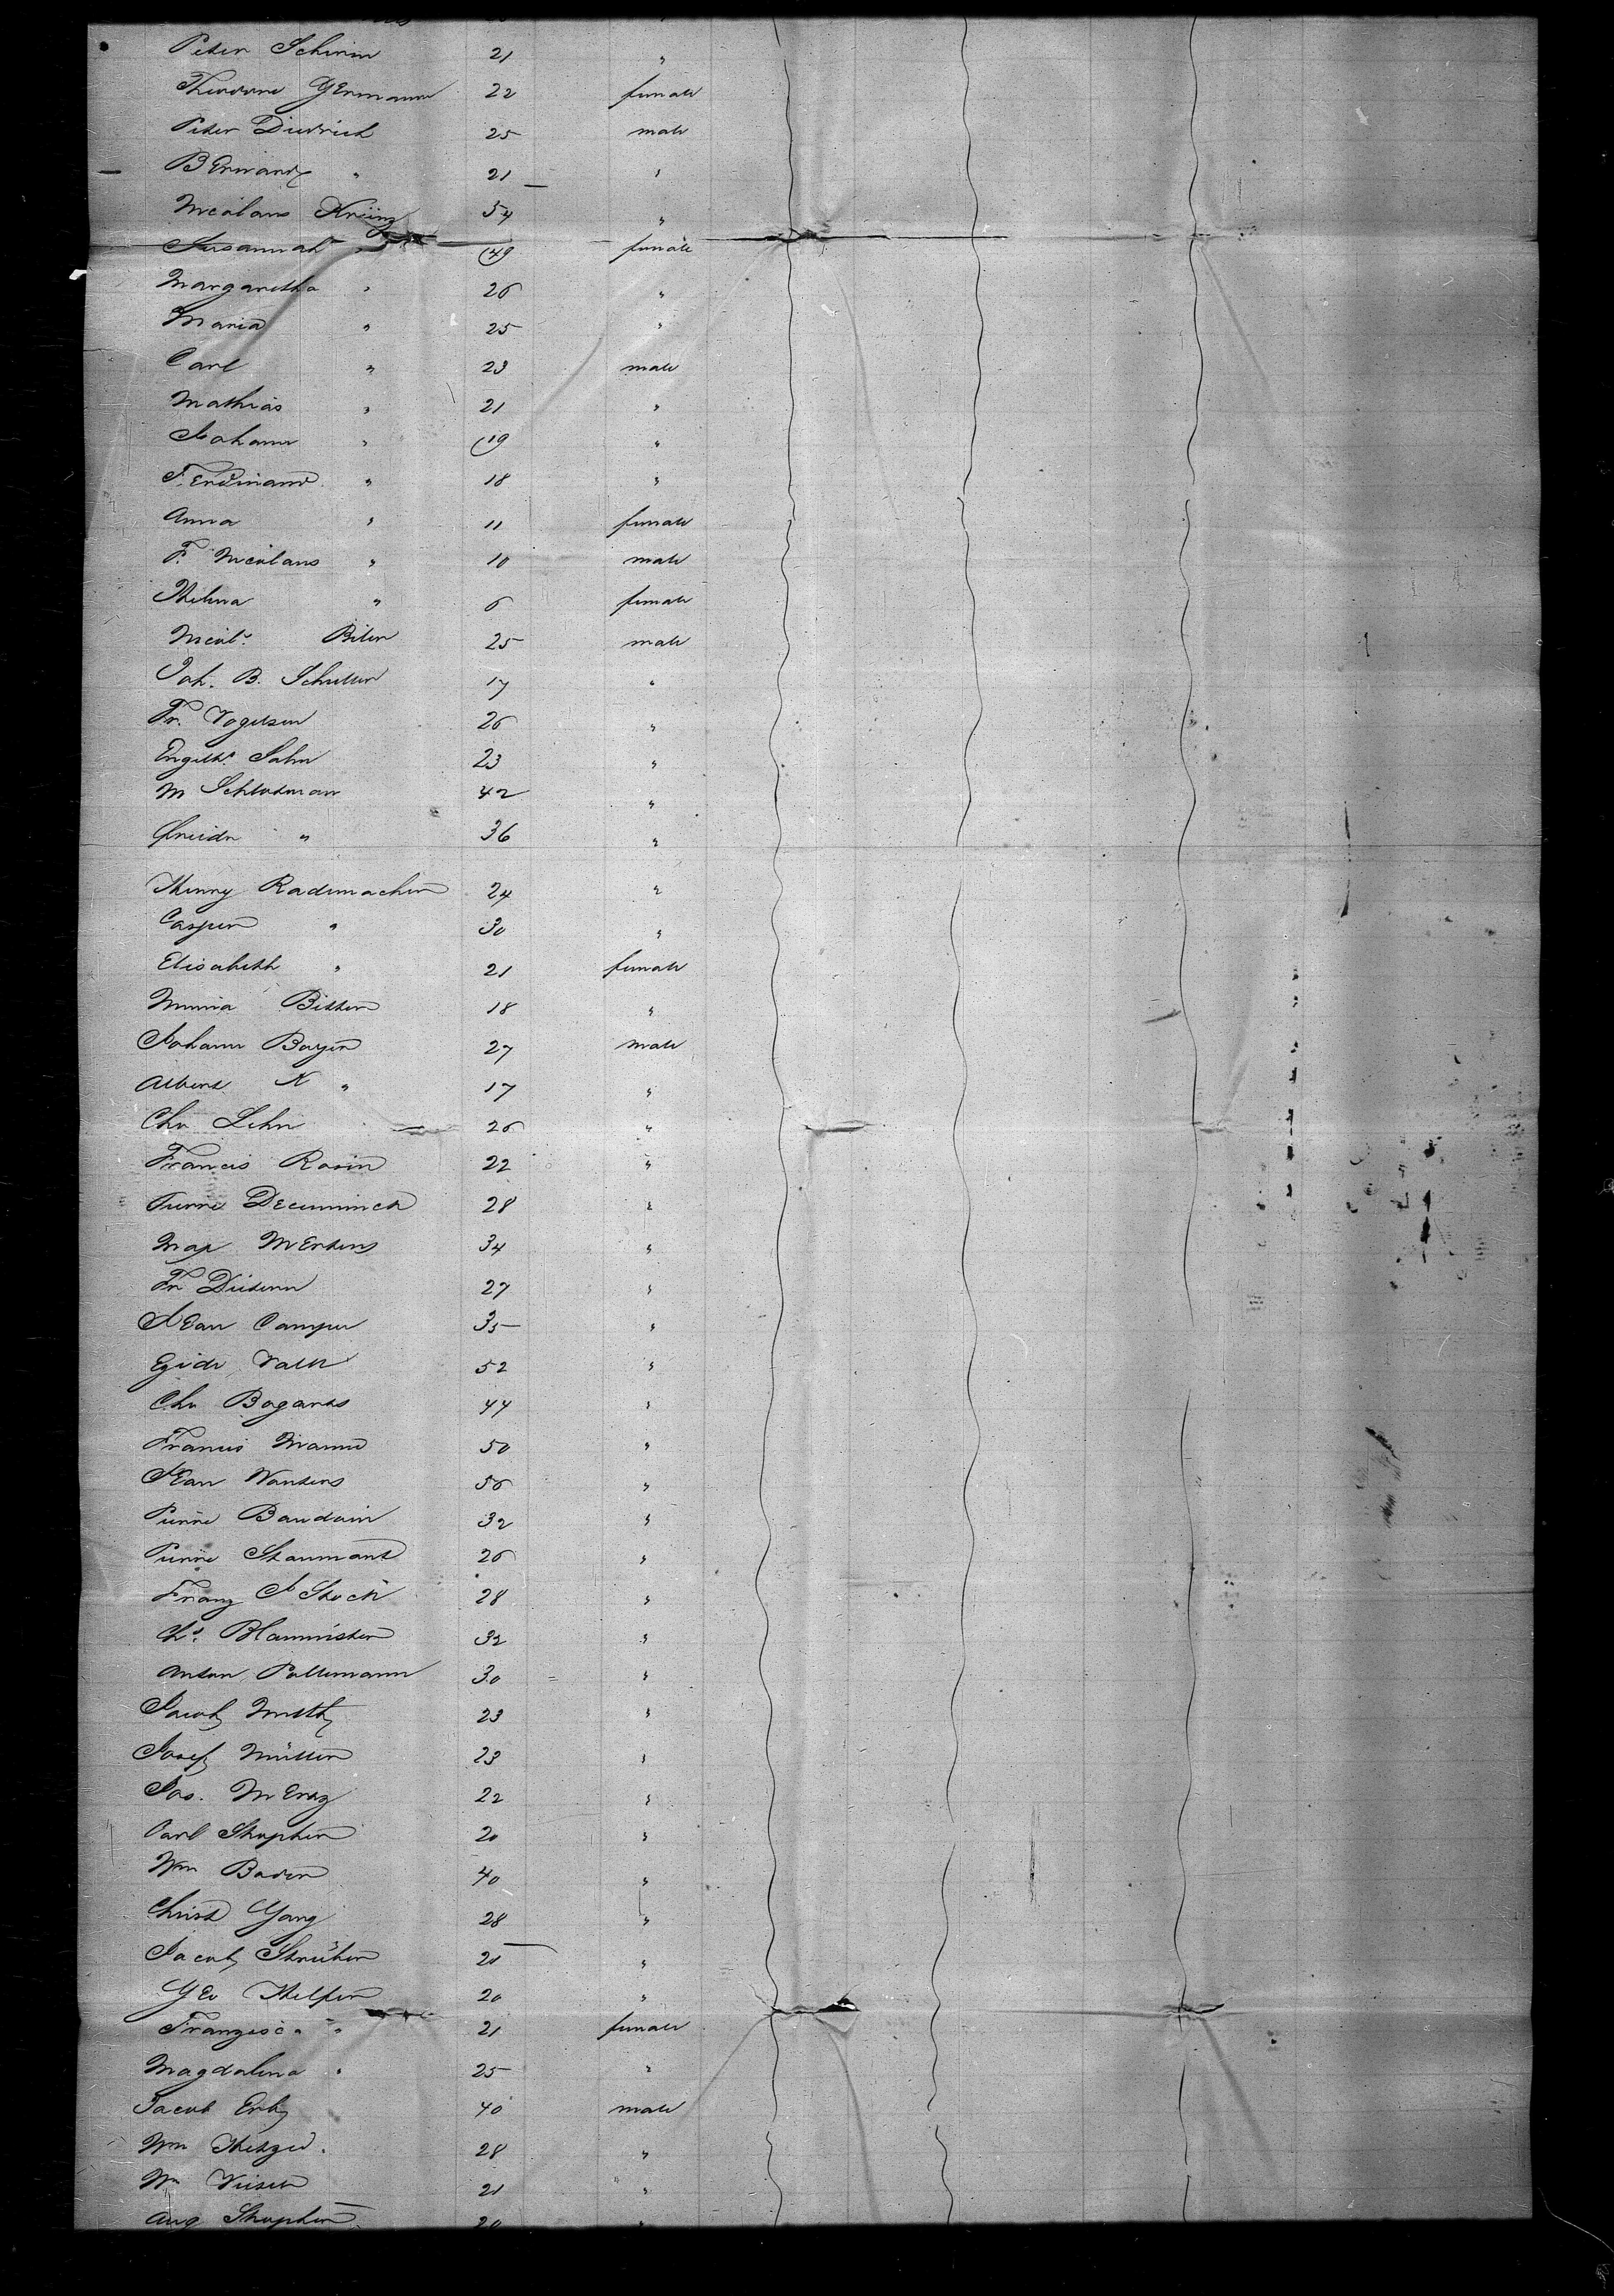 Peter Schirm 21 "
Theodore Germann 22 female
Peter Diedrich 25 male
Bernard " 21 "
Nicolaus Kring 54 "
Susannah " 49 female
Margaretha " 26 "
Maria " 25 "
Carl " 23 male
Mathias " 21 "
Johann " 19 "
Ferdinand " 18 "
Anna " 11 female
F. Nicolaus " 10 male
Helena " 6 female
Nicol. Biler 25 male
Joh. B. Schuller 17 "
Fr. Vogelsen 26 "
Engelb. Sahn 23 "
M Schlosman 42 "
" 36 "
Henry Rademacher 24 "
Casper " 30 "
Elisabeth " 21 female
Minnia Bitter 18 "
Johann Bayer 27 male
Albert N " 17 "
Chr Lehn 26 "
Francis Rosin 22 "
Pierre Decuninck 28 "
Max Mertens 34 "
Fr Dieteren 27 "
Jean Camper 35 "
Egide Valk 52 "
Chr Bogarts 44 "
Francis Manne 50 "
Jean Wauters 56 "
Pierre Baudoin 32 "
Pierre Staumant 26 "
Franz J Stock 28 "
Chs. Blanmister 32 "
Anton Pallemann 30 "
Jacob 23 "
Josef Müller 23 "
Jos. Merz 22 "
Carl Stephen 20 "
Wm Bader 40 "
Christ Yang 28 "
Jacob Streiber 21 "
Geo Helfer 20 "
Franzisca " 21 female
Magdalena " 25 "
Jacob Erb 40 male
Wm Metzger 28 "
Wm 21 "
Aug Stephen 20 "